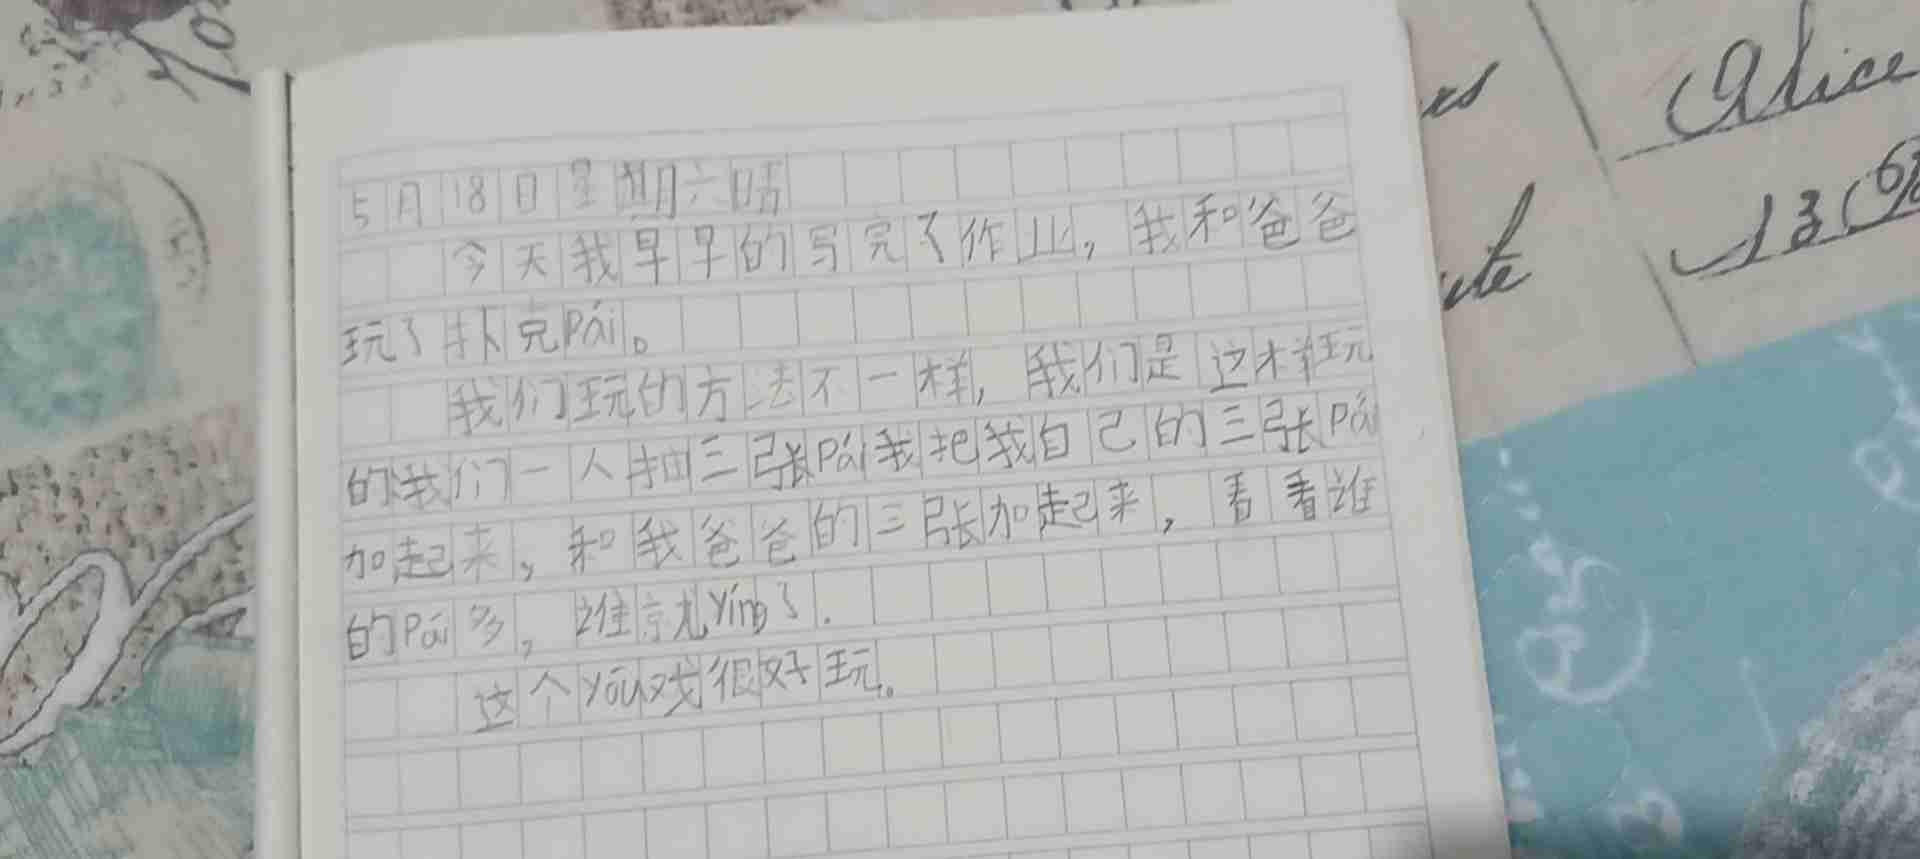 5月18日星期六晴
今天我早早的写完了作业,我和爸爸
玩了扑克Pái。
我们玩的方法不一样,我们是这样玩
的我们一人抽三张Pái我把我自己的三张Pái
加起来,和我爸爸的三张加起来,看看谁
的Pái多,谁就Yíng了.
这个yóu戏很好玩。
Alice